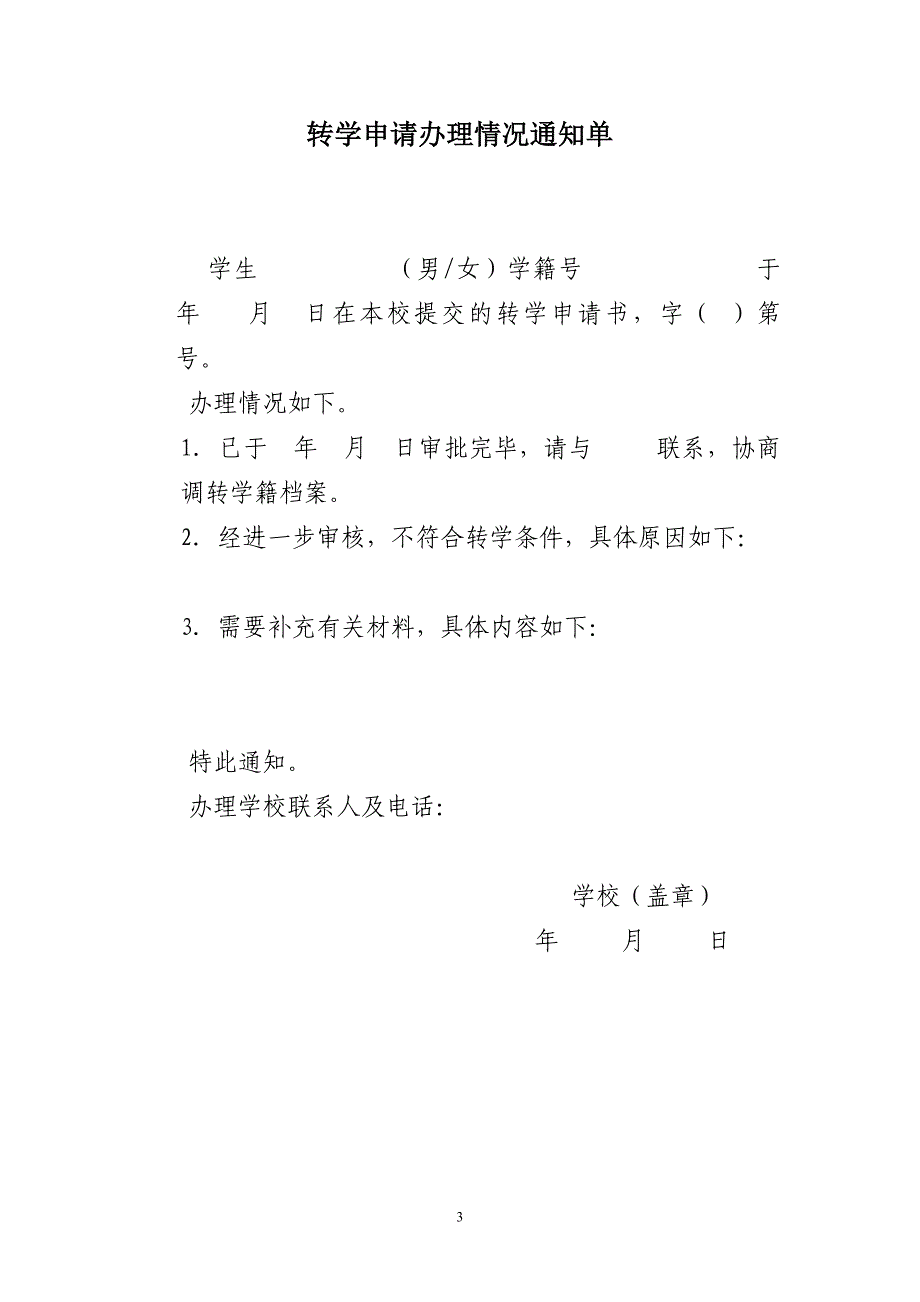 转学申请办理情况通知单
学生 （男/女）学籍号 于
年 月 日在本校提交的转学申请书，字（ ）第
号。
办理情况如下。
1. 已于 年 月 日审批完毕，请与 联系，协商
调转学籍档案。
2. 经进一步审核，不符合转学条件，具体原因如下：
3. 需要补充有关材料，具体内容如下：
特此通知。
办理学校联系人及电话：
学校（盖章）
年 月 日
3